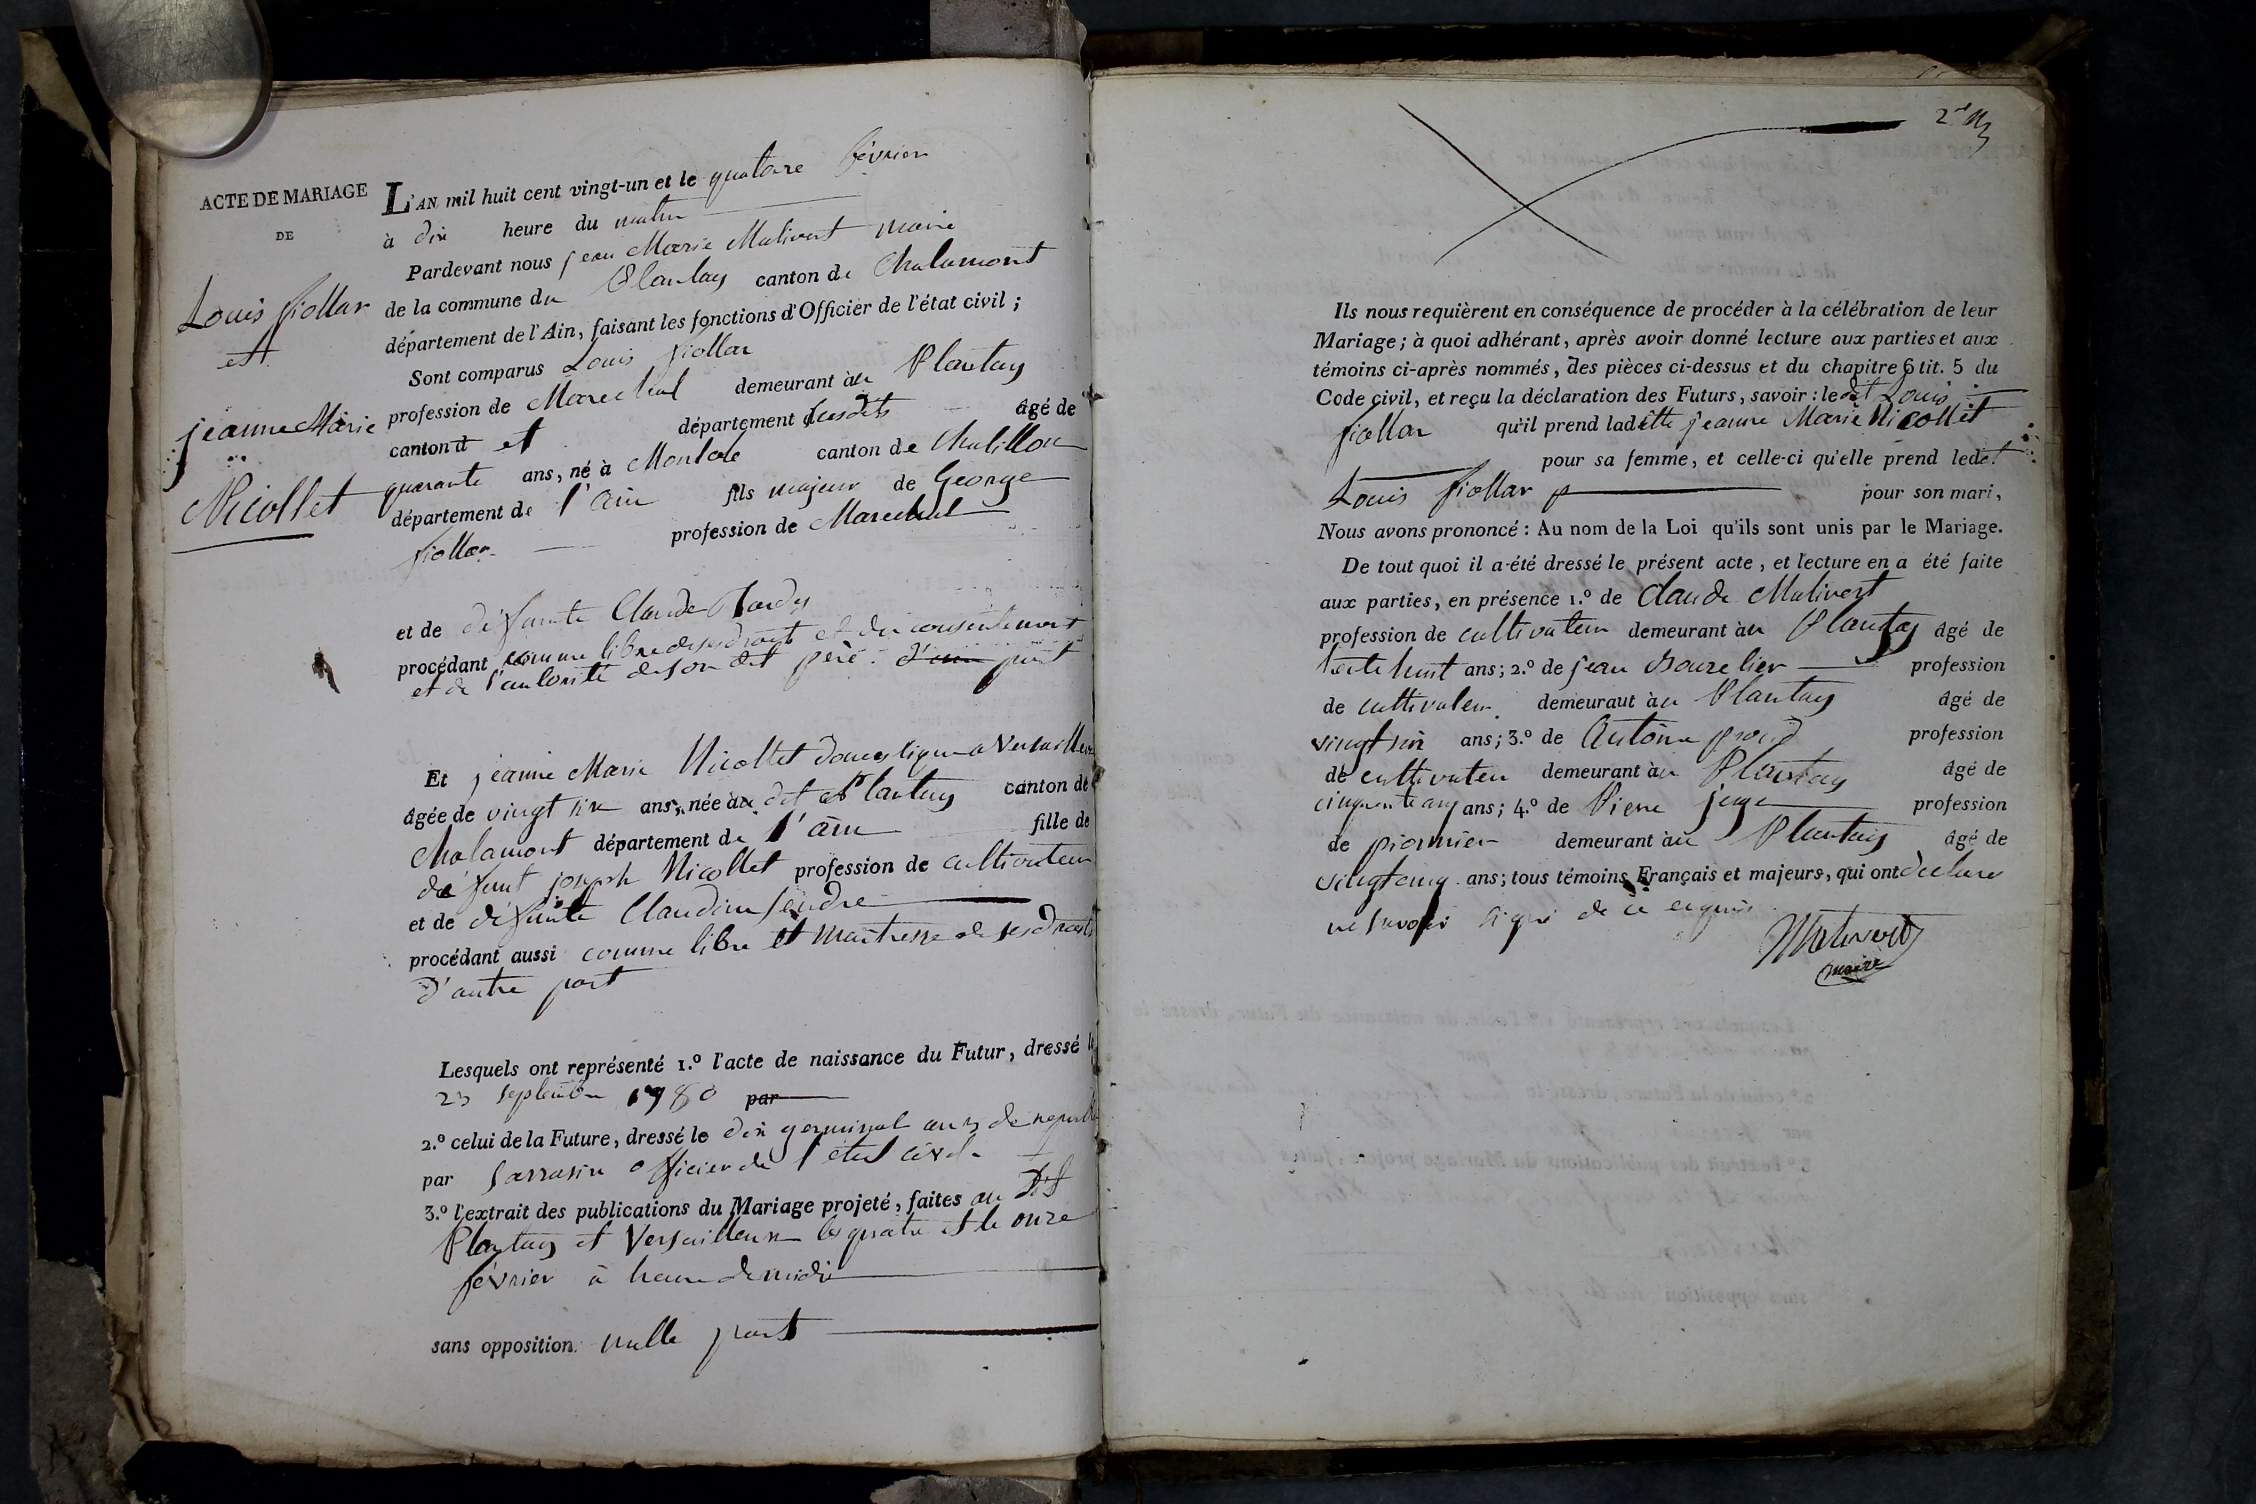 ACTE DE MARIAGE
DE
Louis fiollar
et
jeanne Marie
Nicollet
L'AN mil huit cent vingt-un et le quatorze février
à dix heure du matin
Pardevant nous jean Marie Malivert maire
de la commune du Plantay canton de Chalamont
département de l'Ain, faisant les fonctions d'Officier de l'état civil ;
Sont comparus Louis fiollar
profession de Marechal demeurant au Plantay
canton d et département susdits âgé de
quarante ans, né à canton de Chatillon
département de l'ain fils majeur de George
fiollar profession de Marechal
et de défunte Claude
procédant comme libre de ses droits et du consentement
et de l'autorité de son dit père d'une part
Et jeanne Marie Nicollet domestique a Versailleux
âgée de vingt six ans, née au dit Plantay canton de
Chalamont département de l'ain fille de
défunt joseph Nicollet profession de cultivateur
et de défunte Claudine
procédant aussi comme libre et maitresse de ses droits
d'autre part
Lesquels ont représenté 1.º l'acte de naissance du Futur, dressé le
23 septembre 1780 par
2.º celui de la Future, dressé le dix germinal an 3 de
par Sarrasin officier de l'état civil
3.º l'extrait des publications du Mariage projeté, faites au dit
Plantay et Versailleux les quatre et le onze
février à heure de midi
sans opposition nulle part
Ils nous requièrent en conséquence de procéder à la célébration de leur
Mariage ; à quoi adhérant, après avoir donné lecture aux parties et aux
témoins ci-après nommés, des pièces ci-dessus et du chapitre 6 tit. 5 du
Code civil, et reçu la déclaration des Futurs, savoir : ledit Louis
fiollar qu'il prend ladite jeanne Marie Nicollet
pour sa femme, et celle-ci qu'elle prend ledit
Louis fiollar pour son mari,
Nous avons prononcé : Au nom de la Loi qu'ils sont unis par le Mariage.
De tout quoi il a été dressé le présent acte, et lecture en a été faite
aux parties, en présence 1.º de Claude Malivert
profession de cultivateur demeurant au Plantay âgé de
trente huit ans ; 2.º de jean Bourelier profession
de cultivateur demeurant au Plantay âgé de
vingt six ans ; 3.º de Antoine profession
de cultivateur demeurant au Plantay âgé de
cinquante cinq ans ; 4.º de Pierre profession
de pionnier demeurant au Plantay âgé de
vingt cinq ans ; tous témoins Français et majeurs, qui ont déclaré
ne savoir signé de ce enquis
Malivert
maire